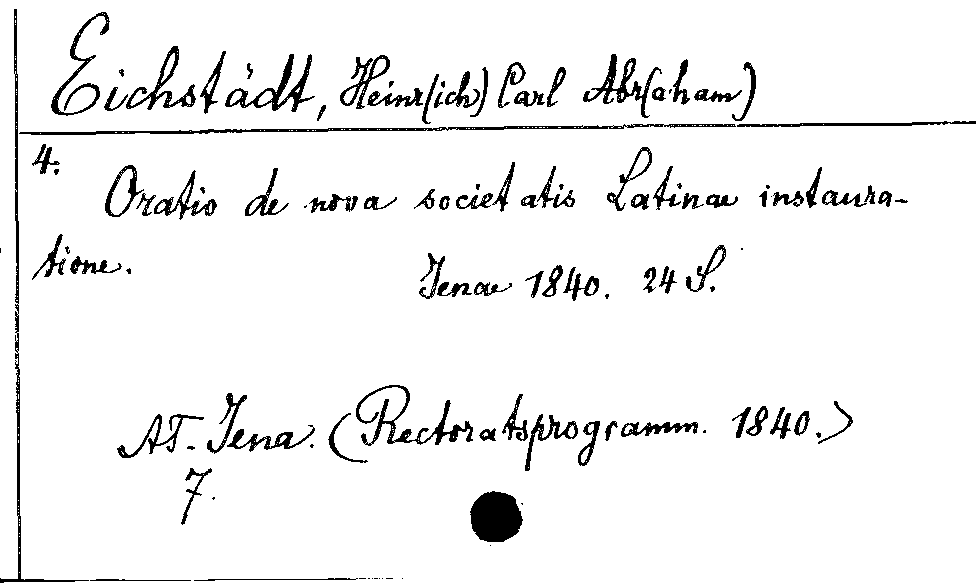 Eichstädt, Heinr(ich) Carl Abr(aham)
4.
Oratio de nova societatis Latinae instaura-
tione.
Jenae 1840. 24 S.
AT- Jena. (Rectoratsprogramm. 1840.)
7.